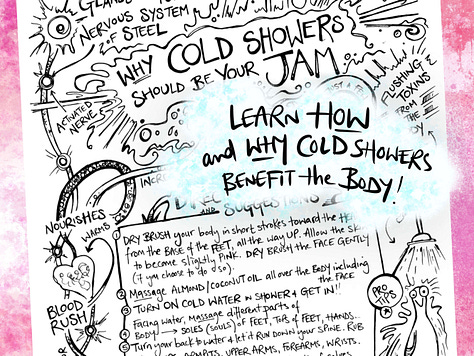 GLAND
NERVOUS SYSTEM
OF STEEL
WHY COLD SHOWERS
SHOULD BE YOUR JAM
JUST A F
FLUSHING
TOXINS
FROM THE
ACTIVATED
NERVE
LEARN HOW
and WHY COLD SHOWERS
BENEFIT the BODY!
INCR
NOURISHES
WARMS
DIREC
and SUGGESTIONS
① DRY BRUSH your body in short strokes toward the HE
from the BASE of the FEET, all the way UP. Allow the SK
to become slightly PINK. DRY BRUSH the FACE GENTLY
(if you choose to do so).
② Massage ALMOND/COCONUT OIL all over the BODY including
the FACE
③ TURN ON COLD WATER in SHOWER & GET IN!!
Facing water, massage different parts of
BODY → SOLES (SOULS) of FEET, TOPS of FEET, HANDS.
④ Turn your back to water & let it RUN down your SPINE. RUB
ARMPITS, UPPER ARMS, FOREARMS, WRISTS.
BLOOD
RUSH
PRO
TIPS